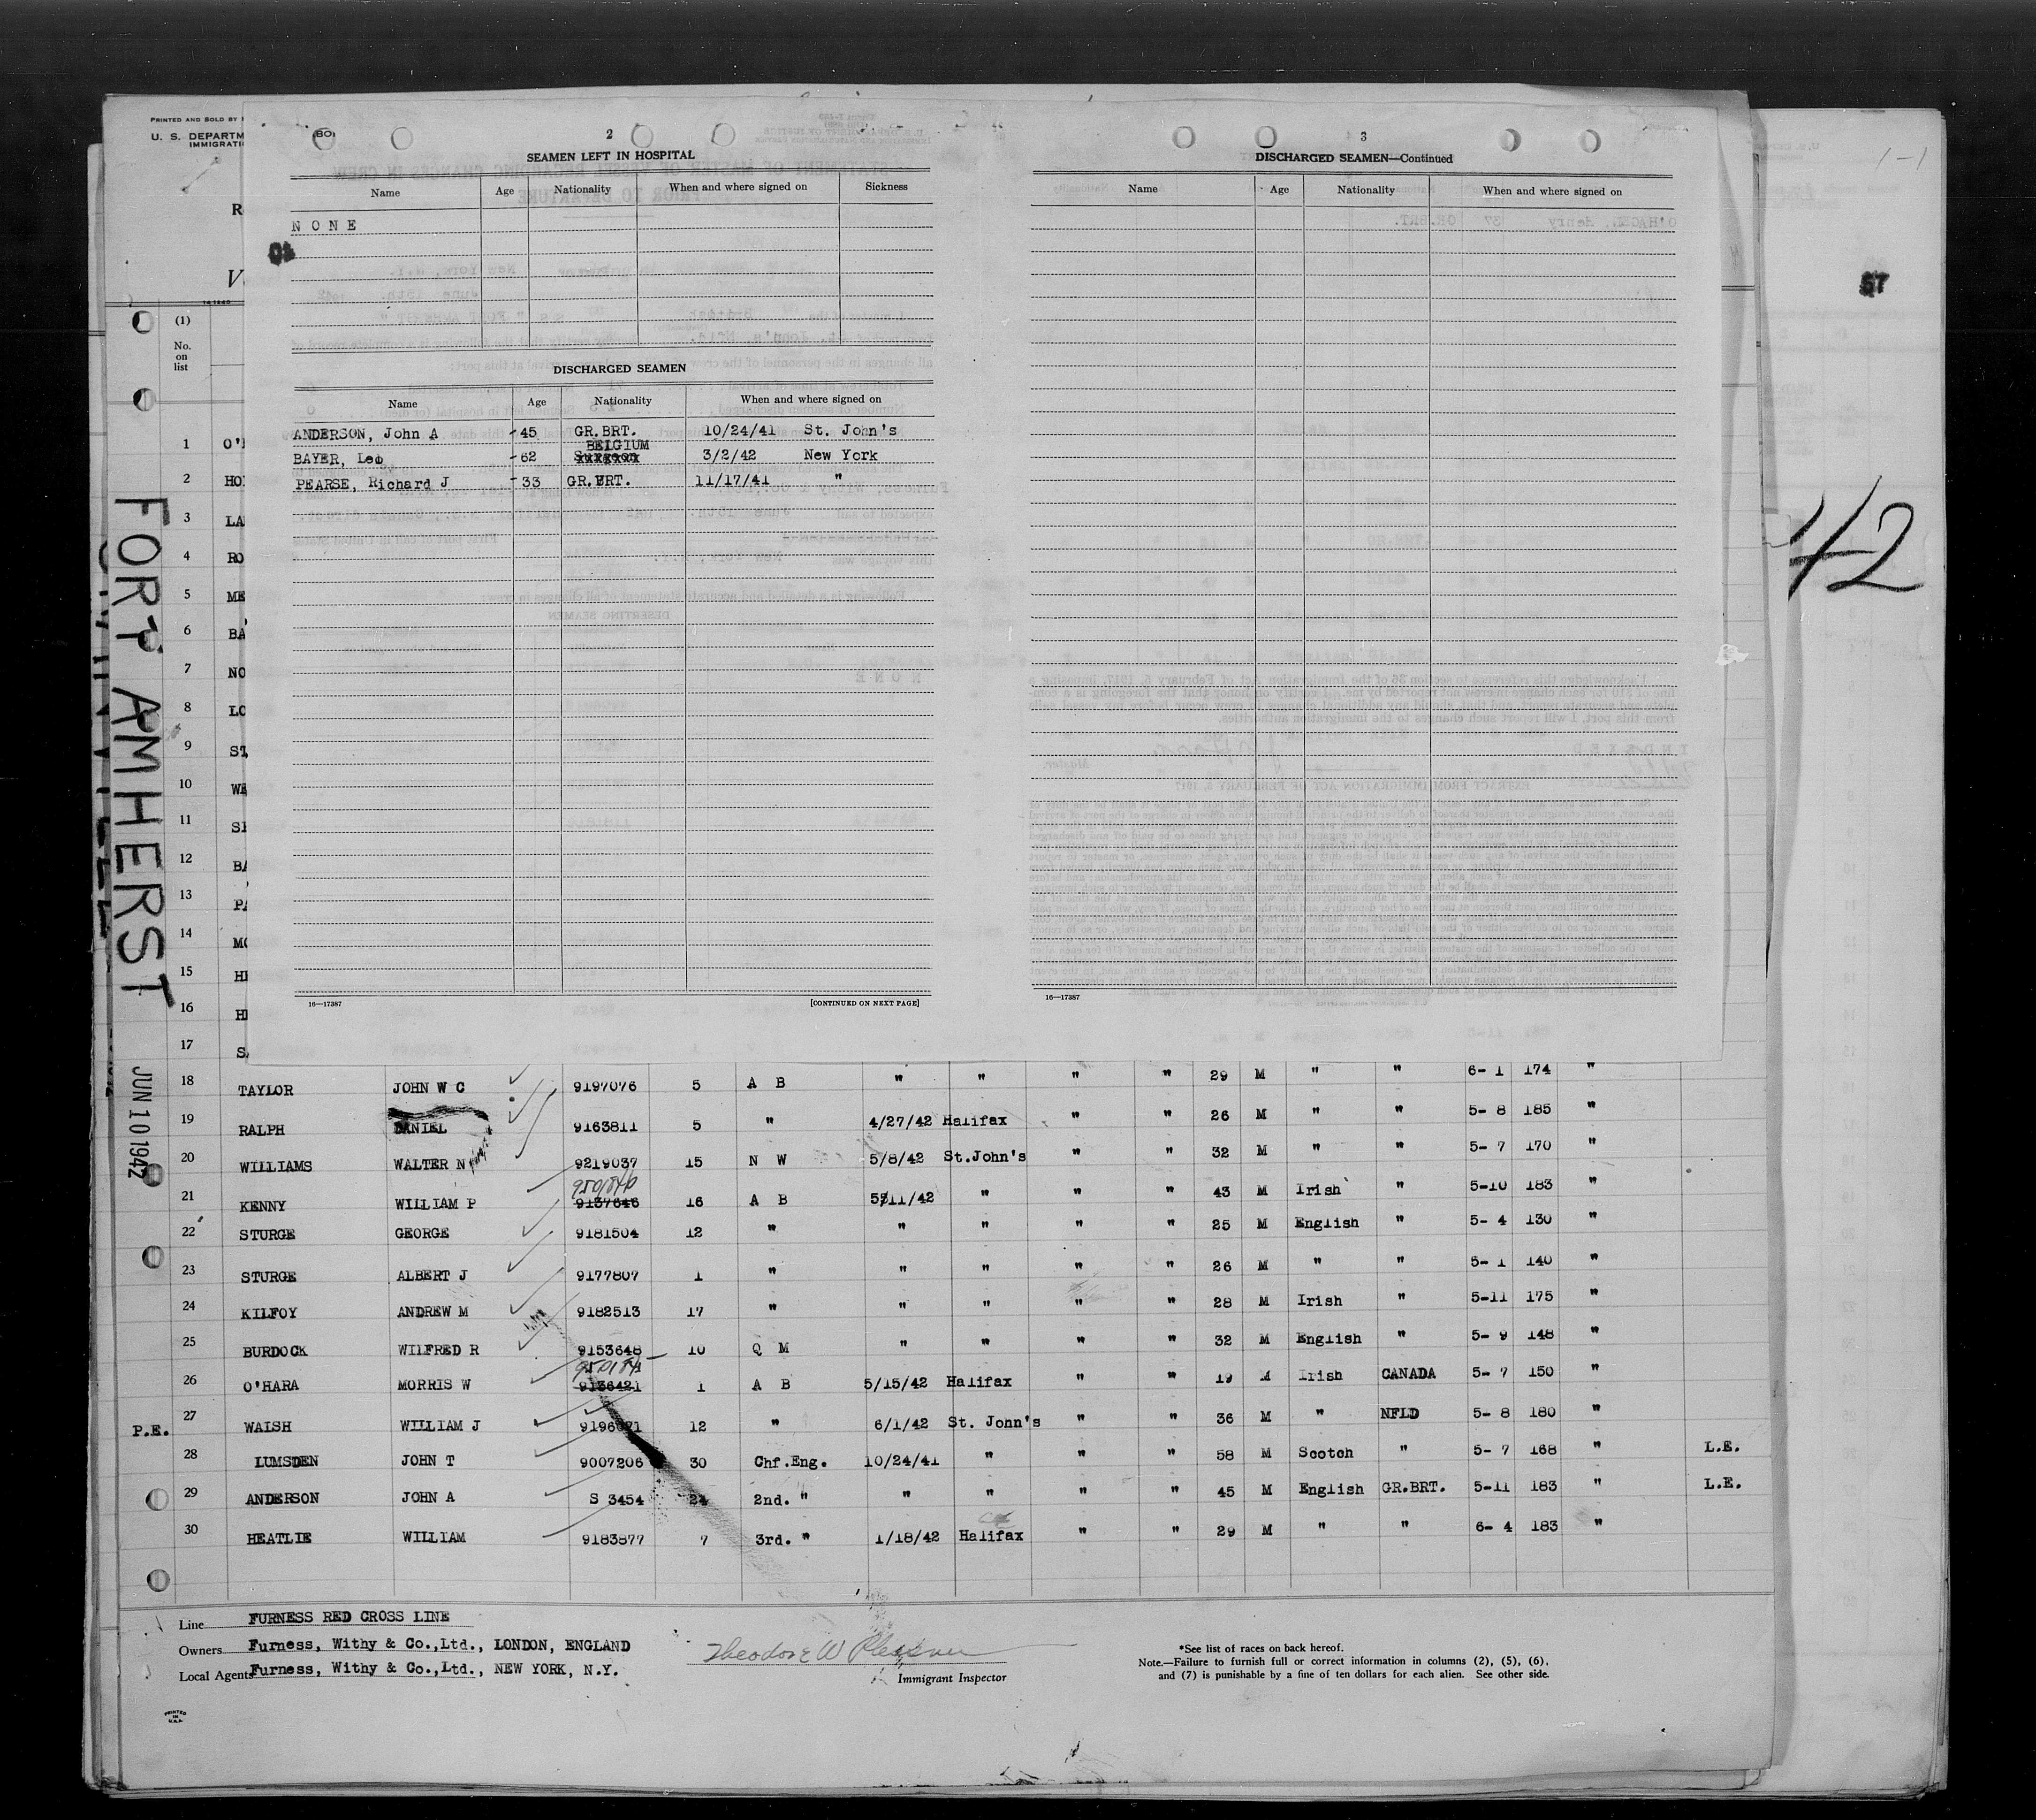 PRINTED AND SOLD BY
U. S. DEPARTM
IMMIGRATI
R
V
(1)
No.
on
list
FORT AMHERST
JUN 10 1942
2
SEAMEN LEFT IN HOSPITAL
Name Age Nationality When and where signed on Sickness
N O N E
DISCHARGED SEAMEN
Name Age Nationality When and where signed on
ANDERSON, John A -45 GR.BRT. 10/24/41 St. John's
BELGIUM
BAYER, Leo -62 3/2/42 New York
PEARSE, Richard J -33 GR.BRT. 11/17/41 "
16—17387 [CONTINUED ON NEXT PAGE]
3
DISCHARGED SEAMEN—Continued
Name Age Nationality When and where signed on
16—17387
1-1
57
42
1 O'
2 HO
3 LA
4 RO
5 ME
6 BA
7 NO
8 LO
9 ST
10 WA
11 SI
12 BA
13 PA
14 MO
15 HI
16 HI
17 S
18 TAYLOR JOHN W C 9197076 5 A B " " " " 29 M " " 6- 1 174 "
19 RALPH DANIEL 9163811 5 " 4/27/42 Halifax " " 26 M " " 5- 8 185 "
20 WILLIAMS WALTER N 9219037 15 N W 5/8/42 St.John's " " 32 M " " 5- 7 170 "
21 KENNY WILLIAM P 9137646 16 A B 5/11/42 " " " 43 M Irish " 5-10 183 "
22 STURGE GEORGE 9181504 12 " " " " " 25 M English " 5- 4 130 "
23 STURGE ALBERT J 9177807 1 " " " " " 26 M " " 5- 1 140 "
24 KILFOY ANDREW M 9182513 17 " " " " " 28 M Irish " 5-11 175 "
25 BURDOCK WILFRED R 9153648 10 Q M " " " " 32 M English " 5- 9 148 "
26 O'HARA MORRIS W 9136421 1 A B 5/15/42 Halifax " " 19 M Irish CANADA 5- 7 150 "
P.E. 27 WAISH WILLIAM J 12 " 6/1/42 St. John's " " 36 M " NFLD 5- 8 180 "
28 LUMSDEN JOHN T 9007206 30 Chf.Eng. 10/24/41 " " " 58 M Scotch " 5- 7 168 " L.E.
29 ANDERSON JOHN A S 3454 24 2nd. " " " " " 45 M English GR.BRT. 5-11 183 " L.E.
30 HEATLIE WILLIAM 9183877 7 3rd. " 1/18/42 Halifax " " 29 M " " 6- 4 183 "
Line FURNESS RED CROSS LINE
Owners Furness, Withy & Co.,Ltd., LONDON, ENGLAND
Local Agents Furness, Withy & Co.,Ltd., NEW YORK, N.Y.
Theodore W
Immigrant Inspector
*See list of races on back hereof.
Note.—Failure to furnish full or correct information in columns (2), (5), (6),
and (7) is punishable by a fine of ten dollars for each alien. See other side.
PRINTED
IN
U.S.A.